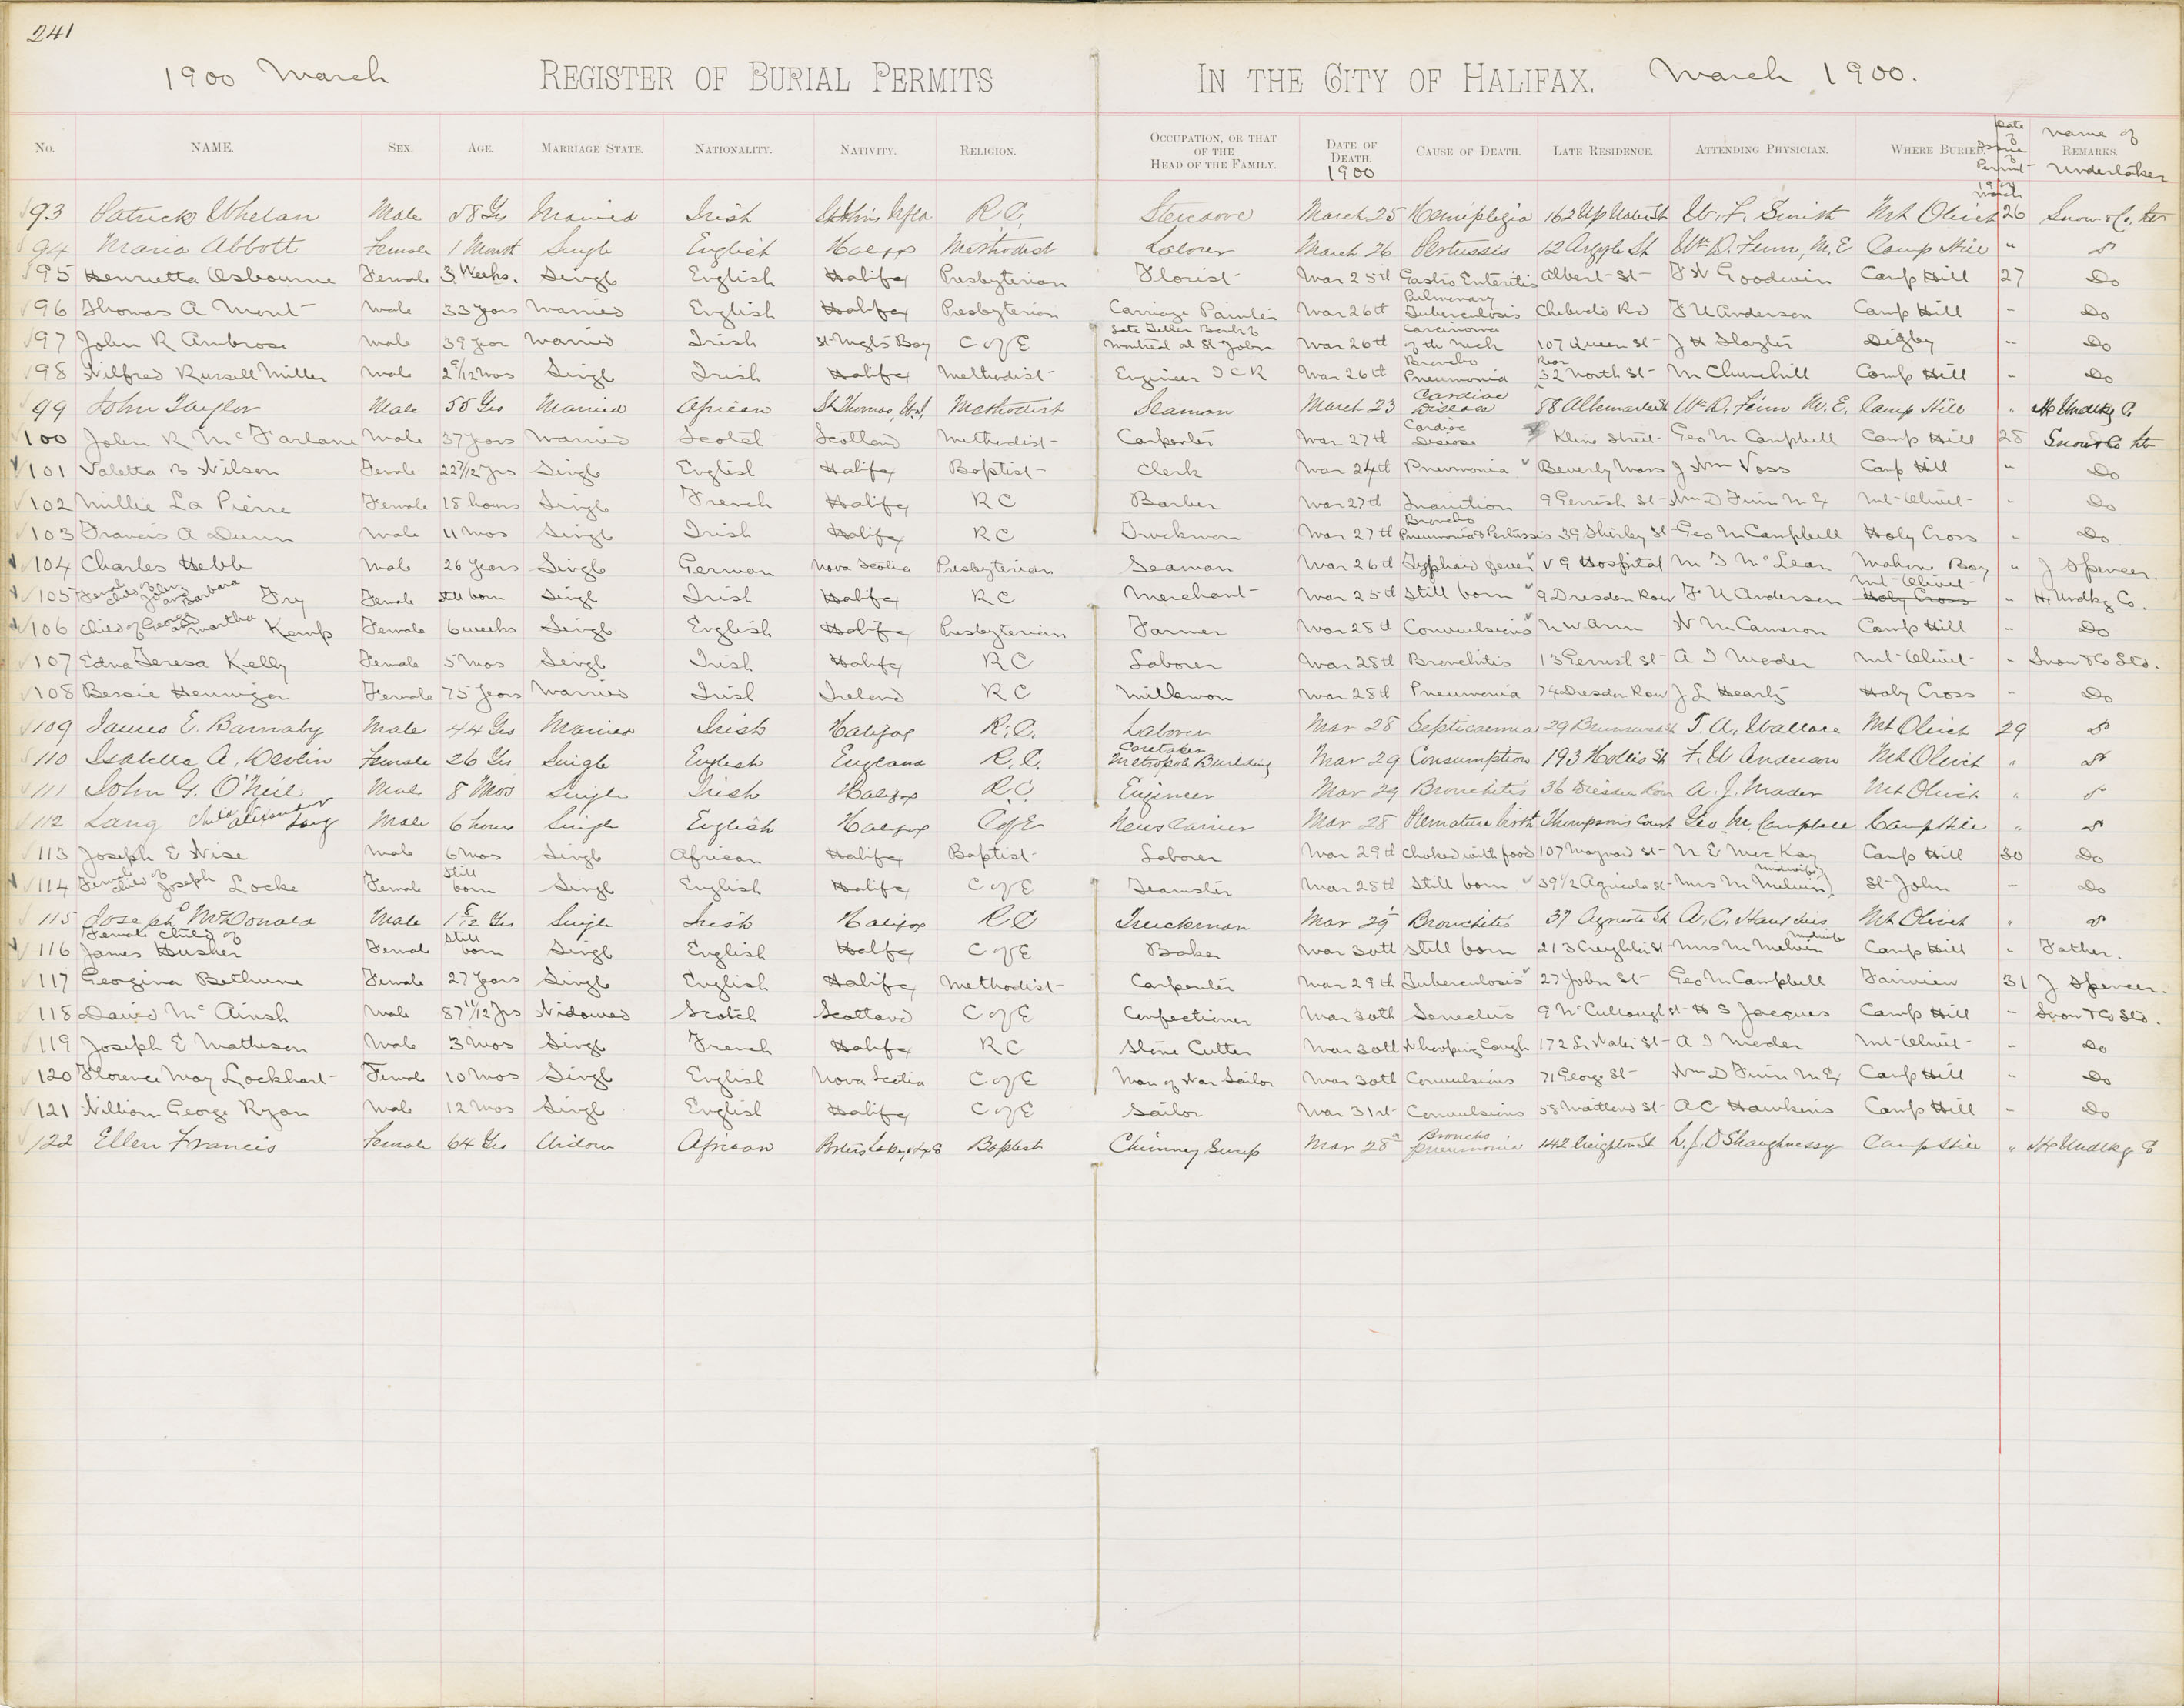 241
1900 March REGISTER OF BURIAL PERMITS IN THE CITY OF HALIFAX. March 1900.
No. NAME. SEX. AGE. MARRIAGE STATE. NATIONALITY. NATIVITY. RELIGION. OCCUPATION, OR THAT OF THE HEAD OF THE FAMILY. DATE OF DEATH. 1900 CAUSE OF DEATH. LATE RESIDENCE. ATTENDING PHYSICIAN. WHERE BURIED. Date of Issue of Permit 1900 March Name of REMARKS. Undertaker
93 Patrick Whelan Male 58 Yrs Married Irish St Johns Nfld R.C. Stevadore March 25 Hemiplegia 162 Up Water St Mt Olivet 26 Snow & Co.
94 Maria Abbott Female 1 Month Single English Halifax Methodist Laborer March 26 Pertussis 12 Argyle St Wm D. Finn, M.E. Camp Hill "
95 Henrietta Osbourne Female 3 Weeks. Single English Halifax Presbyterian Florist Mar 25th Gastro Enteritis Albert St Goodwin Camp Hill 27 Do
96 Thomas A Mont Male 33 Years Married English Halifax Presbyterian Carriage Painter Mar 26th Pulmonary Tuberculosis Chebucto Rd F U Anderson Camp Hill " Do
97 John R Ambrose Male 39 Year Married Irish St Mgts Bay C of E Late Teller Bank of Montreal at St John Mar 26th Carcinoma of the Neck 107 Queen St J H Slayter Digby " Do
98 Wilfred Russell Miller Male 2 9/12 Mos Single Irish Halifax Methodist Engineer I C R Mar 26th Broncho Pneumonia Rear 32 North St M Churchill Camp Hill " Do
99 John Taylor Male 55 Yrs Married African St Thomas, W.I. Methodist Seaman March 23 Cardiac Disease 88 Albemarle St Wm D. Finn M.E. Camp Hill " Hx Undtkg Co
100 John R McFarlane Male 37 Years Married Scotch Scotland Methodist Carpenter Mar 27th Cardiac Disease Kline Street Geo M Campbell Camp Hill 28 Snow & Co
101 Valetta B Wilson Female 22 7/12 Yrs Single English Halifax Baptist Clerk Mar 24th Pneumonia Beverly Mass J Wm Voss Camp Hill " Do
102 Millie La Pierre Female 18 hours Single French Halifax RC Barber Mar 27th Inanition 9 Gerrish St Wm D Finn M Ex Mt Olivet " Do
103 Francis A Dunn Male 11 Mos Single Irish Halifax RC Truckman Mar 27th Broncho Pneumonia & Pertussis 39 Shirley St Geo M Campbell Holy Cross " Do
104 Charles Hebb Male 26 Years Single German Nova Scotia Presbyterian Seaman Mar 26th Typhoid fever V G Hospital M T McLean Mahone Bay " J Spencer.
105 Female child of John and Barbara Fry Female Still born Single Irish Halifax RC Merchant Mar 25th Still born 9 Dresden Row F U Anderson Mt Olivet Holy Cross " Hx Undtkg Co.
106 Child of George and Martha Kemp Female 6 weeks Single English Halifax Presbyterian Farmer Mar 28th Convulsions N W Arm W M Cameron Camp Hill " Do
107 Edna Teresa Kelly Female 5 Mos Single Irish Halifax RC Laborer Mar 28th Bronchitis 13 Gerrish St A I Mader Mt Olivet " Snow & Co Ltd.
108 Bessie Hennigan Female 75 Years Married Irish Ireland RC Milkman Mar 28th Pneumonia 74 Dresden Row Holy Cross " Do
109 James E. Barnaby Male 44 Yrs Married Irish Halifax R.C. Laborer Mar 28 Septicaemia 29 Brunswick St T. A. Wallace Mt Olivet 29
110 Isabella A. Devlin Female 26 Yrs Single English England R.C. Caretaker Metropole Building Mar 29 Consumption 193 Hollis St F. U Anderson Mt Olivet "
111 John G. O'Neil Male 8 Mos Single Irish Halifax R.C. Engineer Mar 29 Bronchitis 36 Dresden Row A. J. Mader Mt Olivet "
112 Lang Child Alexander Lang Male 6 hours Single English Halifax C of E News Carrier Mar 28 Premature birth Thompsons Court Geo M. Campbell Camp Hill "
113 Joseph E Wise Male 6 Mos Single African Halifax Baptist Laborer Mar 29th Choked with food 107 Maynard St N E MacKay Camp Hill 30 Do
114 Female child of Joseph Locke Female Still born Single English Halifax C of E Teamster Mar 28th Still born 39 1/2 Agricola St Mrs M Melvin (midwife) St John " Do
115 Joseph McDonald Male Single Irish Halifax RC Truckman Mar 29 Bronchitis 37 Agricola St A. C. Hawkins Mt Olivet "
116 Female child of James Husher Female Still born Single English Halifax C of E Baker Mar 30th Still born 213 Creighton St Mrs M Melvin midwife Camp Hill " Father.
117 Georgina Bethune Female 27 Years Single English Halifax Methodist Carpenter Mar 29th Tuberculosis 27 John St Geo M Campbell Fairview 31 J Spencer.
118 David McAinsh Male 87 11/12 Yrs Widowed Scotch Scotland C of E Confectioner Mar 30th Senectus 9 McCullough St H S Jacques Camp Hill " Snow & Co Ltd.
119 Joseph E Matheson Male 3 Mos Single French Halifax RC Stone Cutter Mar 30th Whooping Cough 172 Lr Water St A I Mader Mt Olivet " Do
120 Florence May Lockhart Female 10 Mos Single English Nova Scotia C of E Man of War Sailor Mar 30th Convulsions 71 George St Wm D Finn M Ex Camp Hill " Do
121 William George Ryan Male 12 Mos Single English Halifax C of E Sailor Mar 31st Convulsions 58 Maitland St A C Hawkins Camp Hill " Do
122 Ellen Francis Female 64 Yrs Widow African Porters Lake, Hx Co Baptist Chimney Sweep Mar 28th Broncho pneumonia 142 Creighton St O'Shaughnessy Camp Hill " Hx Undtkg Co